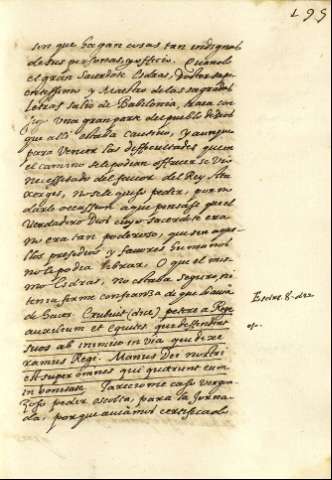 195
sin que hagan cosas tan indignas
de sus personas, y officio. Quando
el gran Sacerdote Esdras, Doctor sapi
entissimo y Maestro de las sagradas
letras salio de Babilonia, traia con
sigo una gran parte del pueblo de Dios
que alli estaba cautivo, y aunque
para vencer las difficultades que en
el camino se le podian offrecer se vio
necessitado del favor del Rey Ata
xerxes, no se le quiso pedir, por no
darle occassion a que pensase que el
Verdadero Dios cuyo sacerdote era
no era tan poderoso, que sin aque
llos presidios y favores humanos
no le podia librar, O que el mis
mo Esdras, no estaba seguro ni
tenia firme confianza de que havia
de hacer Erubui (dice) petere a Rege
auxilium et equites qui defenderent
nos ab inimico in via quia dixe
ramus Regi. Manus Dei nostri
est super omnes qui quærunt eum
in bonitate. Pareciome caso vergon
zoso pedir escolta, para la Jorna
da, porque aviamos certificado
Esdræ. 8.